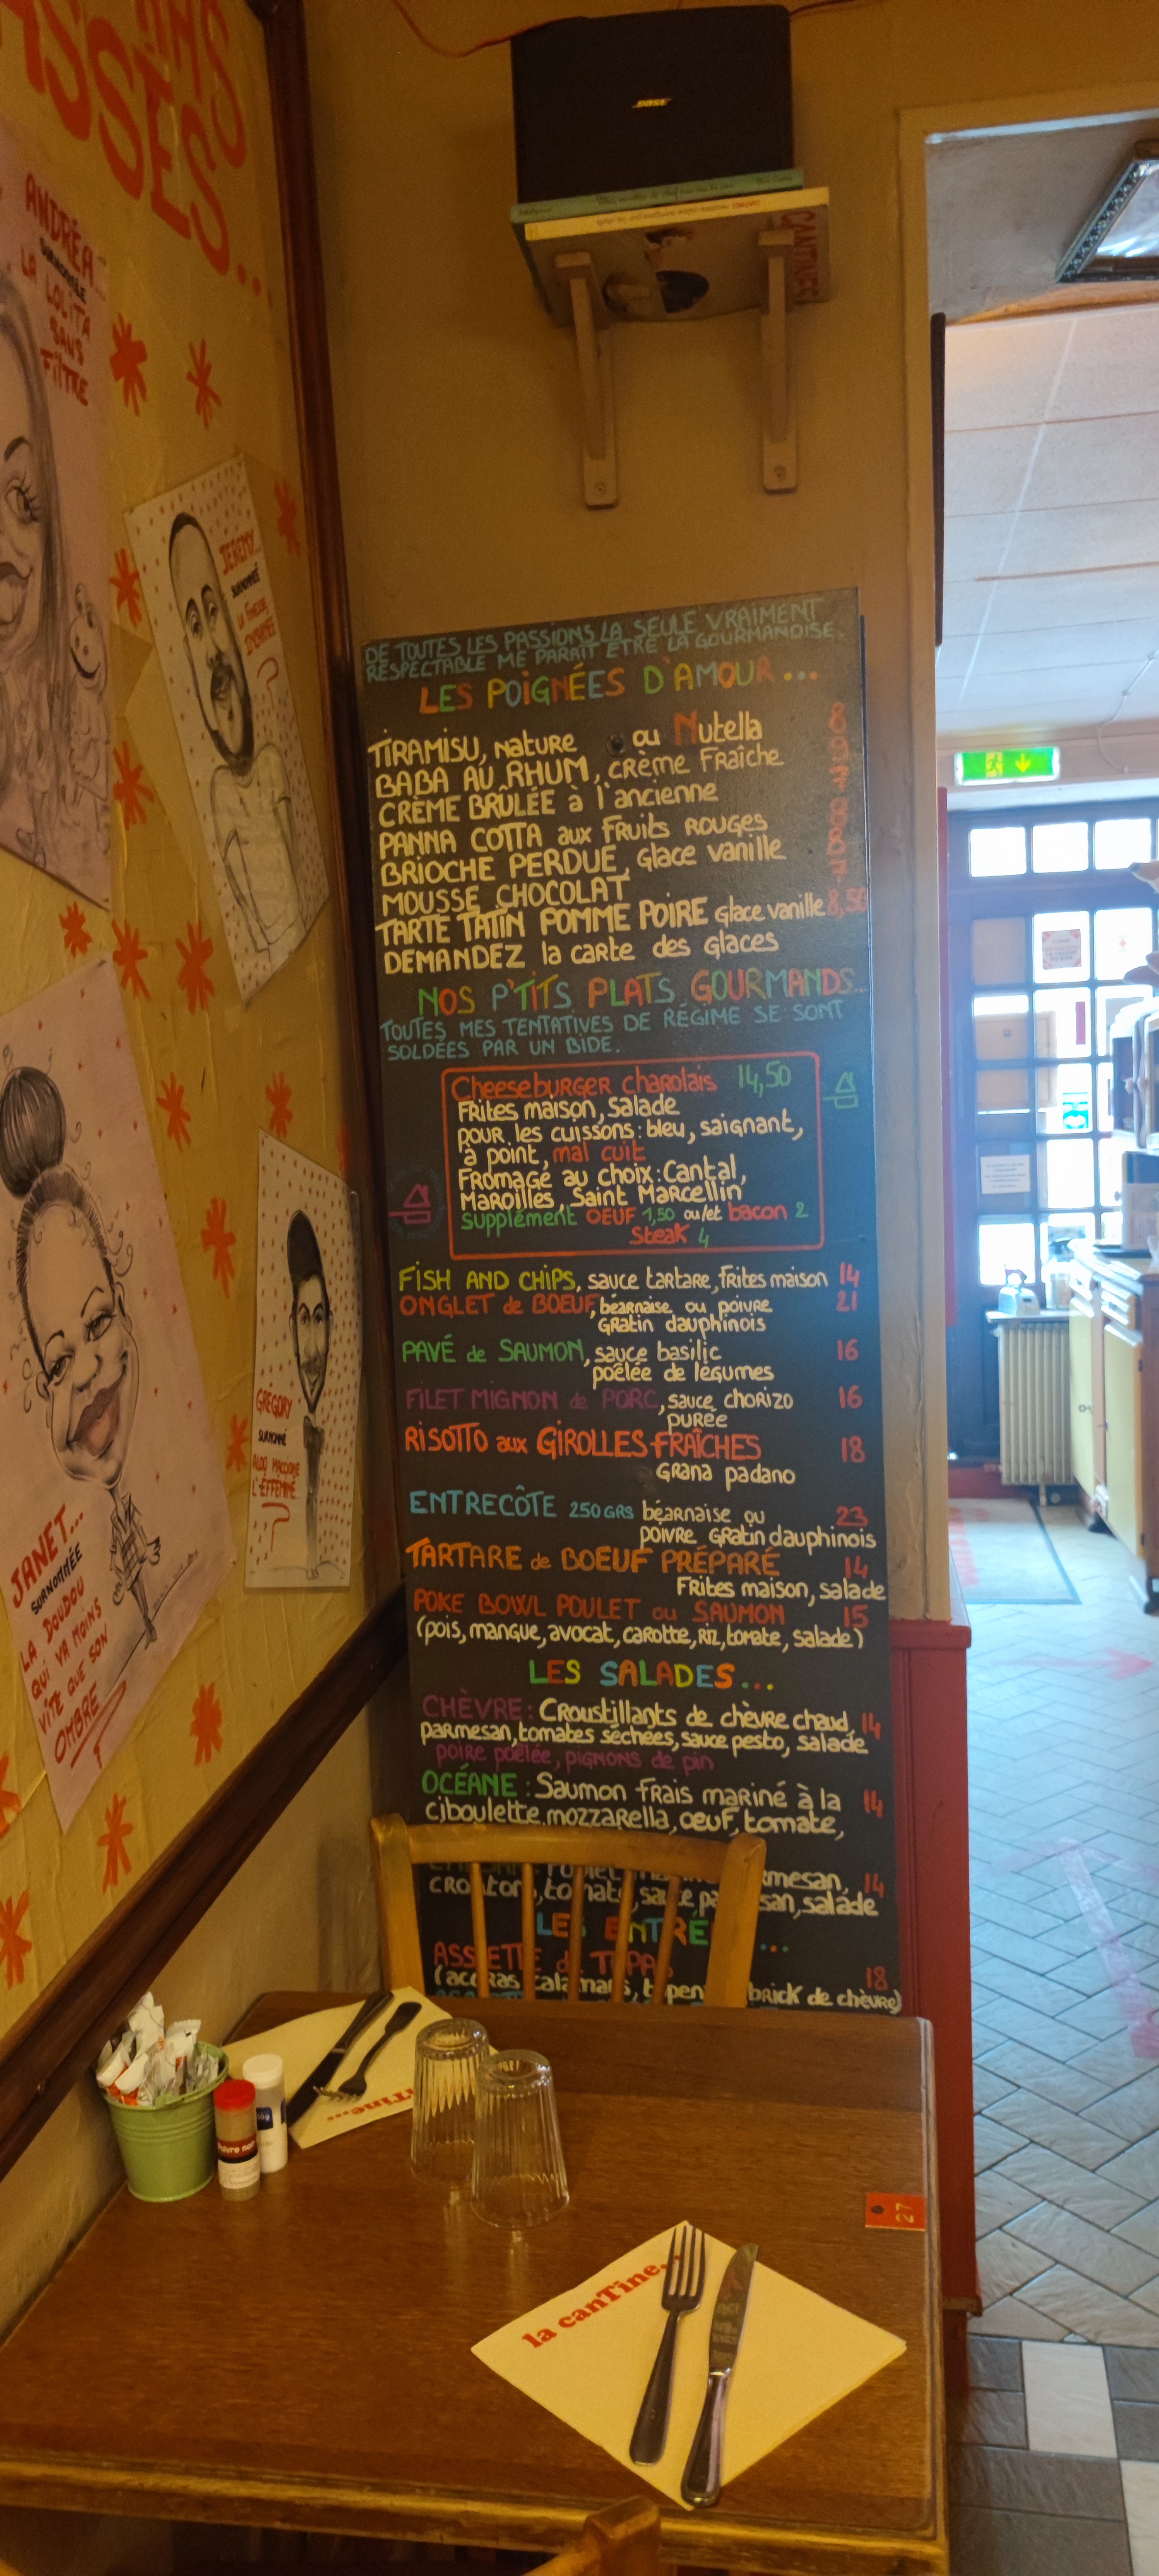 SSÉS...
ANDRÉA...
SURNOMMÉE
LA LOLITA
SANS
FILTRE
JEREMY...
SURNOMMÉ
JANET...
SURNOMMÉE
LA DOUDOU
QUI VA MOINS
VITE QUE SON
OMBRE
GRÉGORY
SURNOMMÉ
ALDO MACCIONE
L'EFFÉMINÉ
BOSE
CANTINES
DE TOUTES LES PASSIONS LA SEULE VRAIMENT
RESPECTABLE ME PARAIT ETRE LA GOURMANDISE.
LES POIGNÉES D'AMOUR...
TIRAMISU, nature ou Nutella 8
BABA AU RHUM, crème Fraîche 9
CRÈME BRÛLÉE à l'ancienne 7
PANNA COTTA aux Fruits ROUGES 8
BRIOCHE PERDUE, Glace vanille 8
MOUSSE CHOCOLAT 7
TARTE TATIN POMME POIRE Glace vanille 8,50
DEMANDEZ la carte des Glaces
NOS P'TITS PLATS GOURMANDS...
TOUTES MES TENTATIVES DE RÉGIME SE SONT
SOLDÉES PAR UN BIDE.
Cheeseburger charolais 14,50
Frites maison, salade
pour les cuissons: bleu, saignant,
à point, mal cuit
Fromage au choix: Cantal,
Maroilles, Saint Marcellin
supplément OEUF 1,50 ou/et bacon 2
Steak 4
FISH AND CHIPS, sauce tartare, frites maison 14
ONGLET de BOEUF, béarnaise ou poivre 21
Gratin dauphinois
PAVÉ de SAUMON, sauce basilic 16
poêlée de légumes
FILET MIGNON de PORC, sauce chorizo 16
purée
RISOTTO aux GIROLLES FRAÎCHES 18
Grana padano
ENTRECÔTE 250 GRS béarnaise ou 23
poivre Gratin dauphinois
TARTARE de BOEUF PRÉPARÉ 14
Frites maison, salade
POKE BOWL POULET ou SAUMON 15
(pois, mangue, avocat, carotte, riz, tomate, salade)
LES SALADES...
CHÈVRE: Croustillants de chèvre chaud, 14
parmesan, tomates séchées, sauce pesto, salade
poire poêlée, pignons de pin
OCÉANE: Saumon frais mariné à la 14
ciboulette, mozzarella, oeuf, tomate,
14
salade
LES ENTRÉ...
ASSIETTE de TAPAS 18
(accras, calamars, brick de chèvre)
la canTine...
27